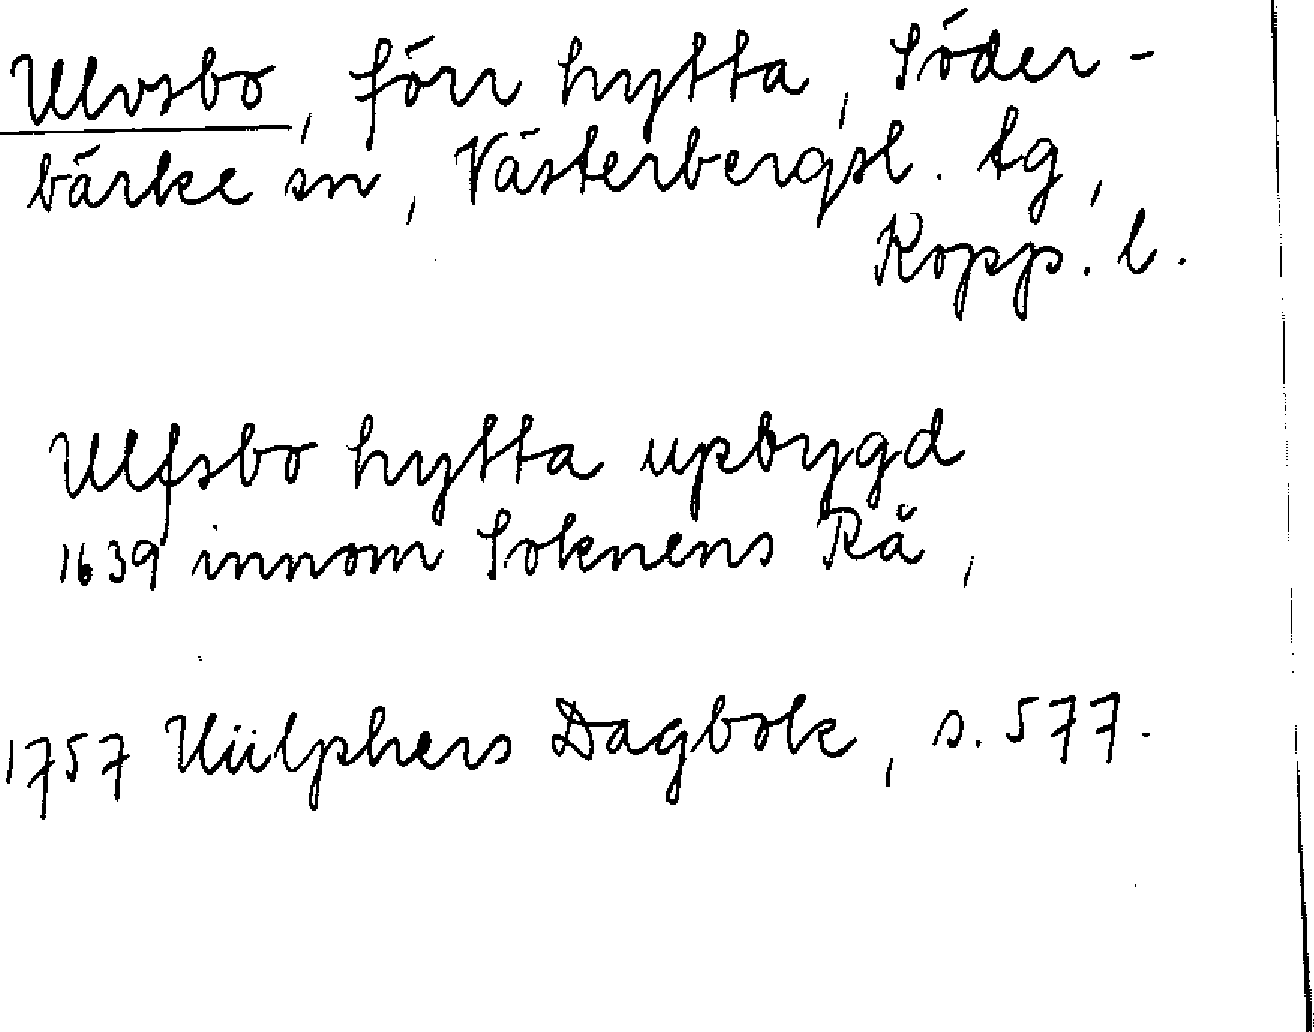 Ulvsbo, förr hytta, Söder-
bärke sn, Västerbergsl. tg,
Kopp. l.
Ulfsbo hytta upbygd
1639 innom Soknens Rå,
1757 Hülphers Dagbok, s. 577.